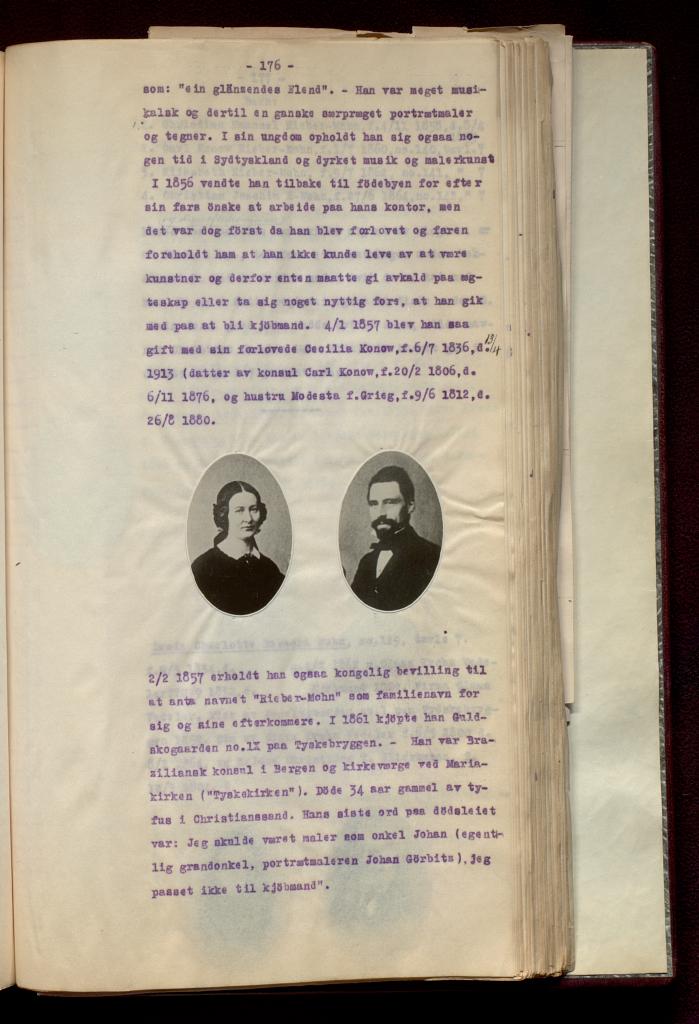 - 176 -
som: "ein glänzendes Elend". - Han var meget musi-
kalsk og dertil en ganske særpræget portrætmaler
og tegner. I sin ungdom opholdt han sig ogsaa no-
gen tid i Sydtyskland og dyrket musik og malerkunst
I 1856 vendte han tilbake til födebyen for efter
sin fars önske at arbeide paa hans kontor, men
det var dog först da han blev forlovet og faren
foreholdt ham at han ikke kunde leve av at være
kunstner og derfor enten maatte gi avkald paa æg-
teskap eller ta sig noget nyttig fore, at han gik
med paa at bli kjöbmand. 4/1 1857 blev han saa
gift med sin forlovede Cecilia Konow,f.6/7 1836,d. 13/4
1913 (datter av konsul Carl Konow,f.20/2 1806,d.
6/11 1876, og hustru Modesta f.Grieg,f.9/6 1812,d.
26/8 1880.
2/2 1857 erholdt han ogsaa kongelig bevilling til
at anta navnet "Rieber-Mohn" som familienavn for
sig og sine efterkommere. I 1861 kjöpte han Guld-
skogaarden no.1X paa Tyskebryggen. - Han var Bra-
ziliansk konsul i Bergen og kirkeværge ved Maria-
kirken ("Tyskekirken"). Döde 34 aar gammel av ty-
fus i Christianssand. Hans siste ord paa dödsleiet
var: Jeg skulde været maler som onkel Johan (egent-
lig grandonkel, portrætmaleren Johan Görbitz), jeg
passet ikke til kjöbmand".